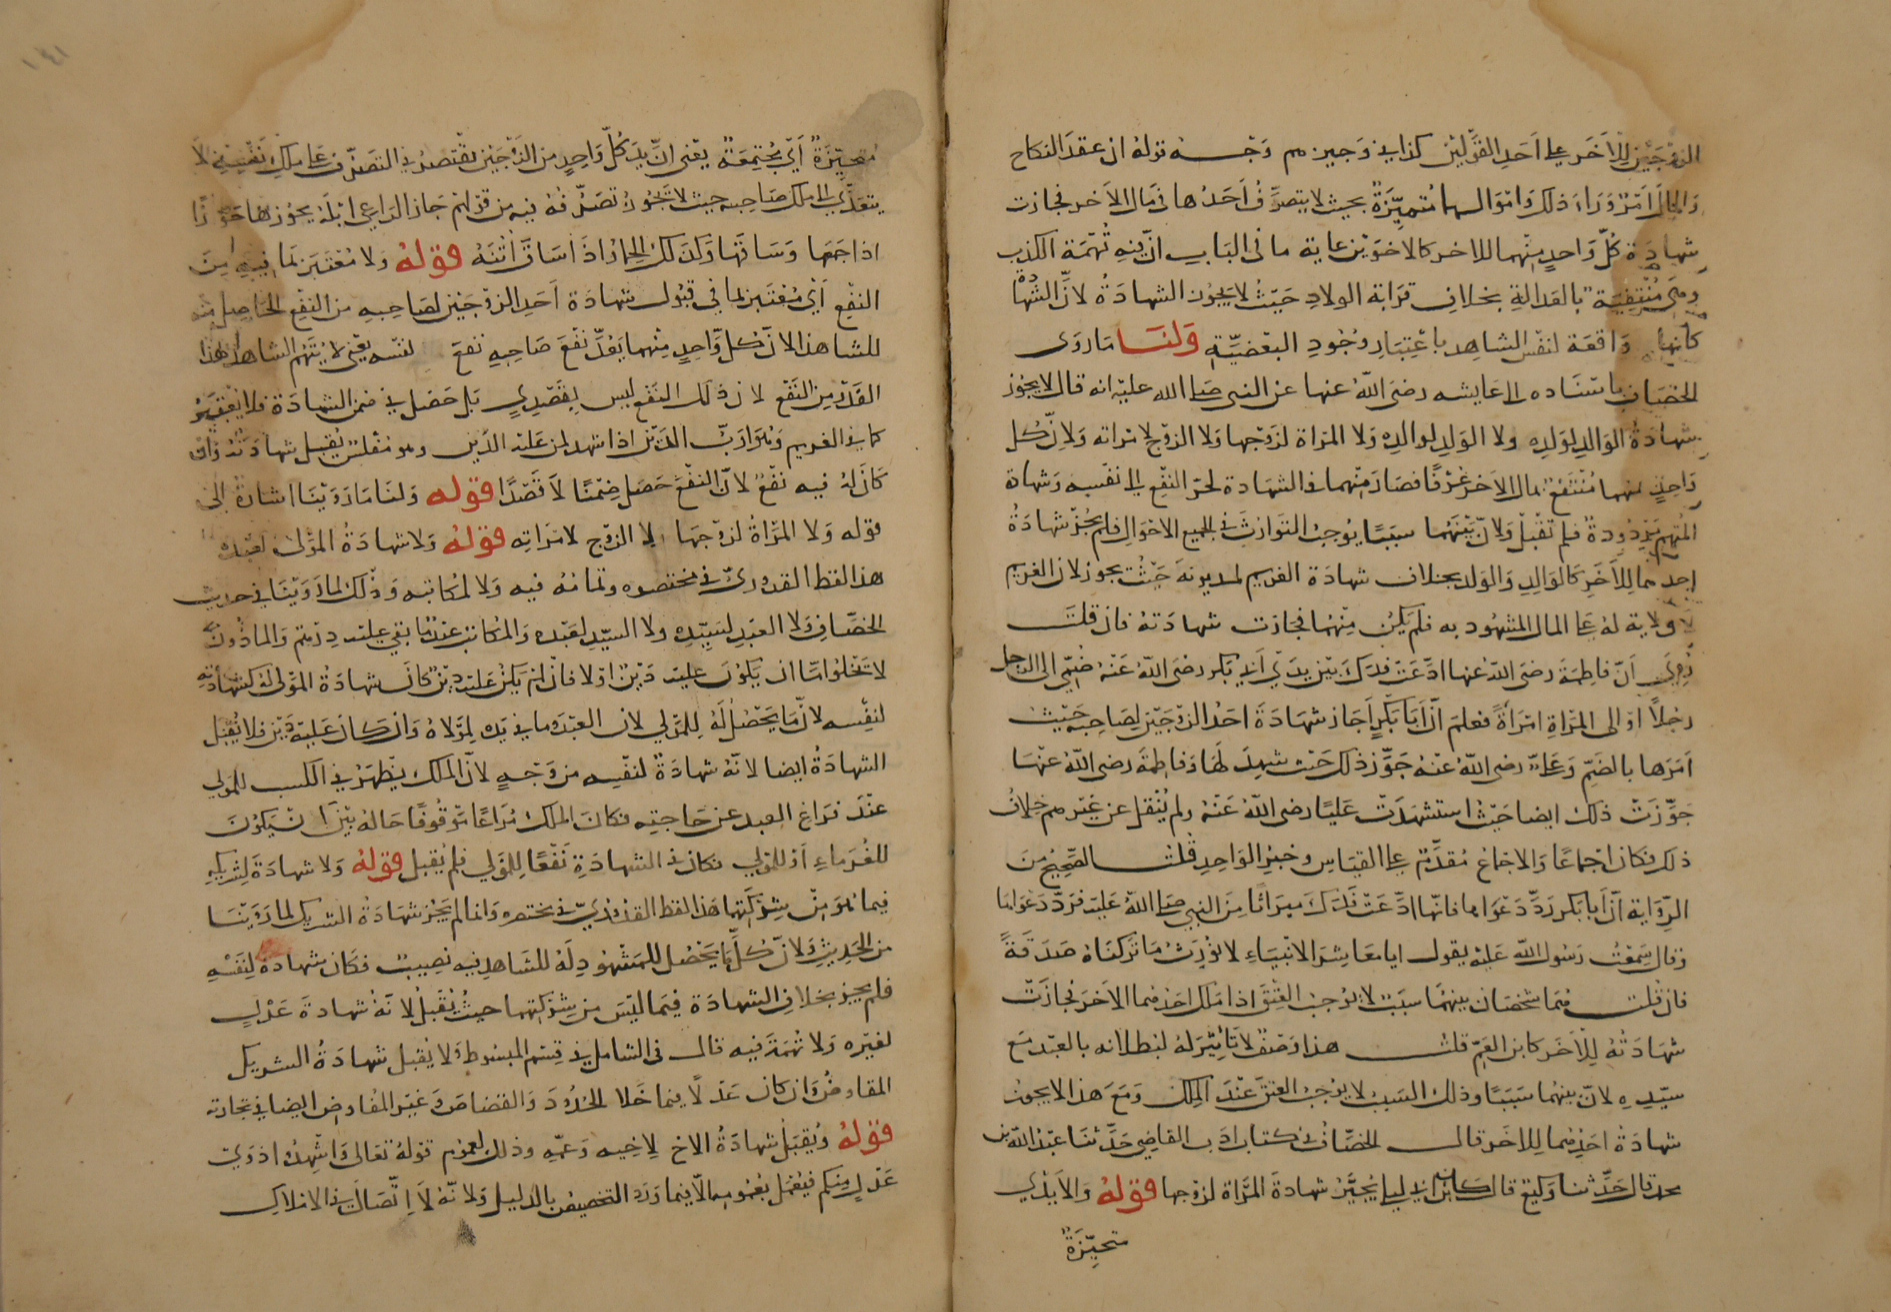 الزوجين للآخر على احد القولين كذا في وجيزهم وجه قوله ان عقد النكاح
والمال امر وراء ذلك واموالهما متميزة بحيث لا يتصرف أحدهما في مال الآخر فجازت
شهادة كل واحد منهما للاخر كالاخوين غاية ما في الباب ان فيه تهمة الكذب
وهي منتفية بالعدالة بخلاف قرابة الولاد حيث لا يجوز الشهادة لان الشهادة
كأنها واقعة لنفس الشاهد باعتبار وجود البعضية ولنا ما روى
الخصاف باسناده الى عايشه رضى الله عنها عن النبى صلى الله عليه انه قال لا يجوز
شهادة الوالد لولده ولا الولد لوالده ولا المراة لزوجها ولا الزوج لامراته ولان كل
واحد منهما منتفع بمال الآخر عرفا فصار متهما في الشهادة لجر النفع الى نفسه وشهادة
المتهم مردودة فلم تقبل ولان بينهما سببا يوجب التوارث في جميع الاحوال فلم يجز شهادة
احدهما للآخر كالوالد والولد بخلاف شهادة الغريم لمديونه حيث يجوز لان الغريم
لا ولاية له على المال المشهود به فلم يكن متهما فجازت شهادته فان قلت
روي أن فاطمة رضى الله عنها ادعت فدك بين يدي أبي بكر رضى الله عنه ضمي الى الرجل
رجلا او الى المراة امرأة فعلم أن أبا بكر أجاز شهادة احد الزوجين لصاحبه حيث
امرها بالضم وعلي رضى الله عنه جوز ذلك حيث شهد لها وفاطمة رضى الله عنها
جوزت ذلك ايضا حيث استشهدت عليا رضى الله عنه ولم ينقل عن غيرهم خلاف
ذلك فكان اجماعا والاجماع مقدم على القياس وخبر الواحد قلت الصحيح من
الرواية أن أبا بكر رد دعواها فانها ادعت فدك ميراثا من النبي صلى الله عليه فرد دعواها
وقال سمعت رسول الله عليه يقول انا معاشر الانبياء لا نورث ما تركناه صدقة
فان قلت هما شخصان بينهما سبب لا يوجب العتق اذا ملك احدهما الآخر فجازت
شهادته للآخر كابن العم قلت هذا وصف لا تاثير له لبطلانه بالعبد مع
سيده لان بينهما سببا وذلك السبب لا يوجب العتق عند الملك ومع هذا لا يجوز
شهادة احدهما للاخر قال الخصاف في كتاب ادب القاضي حدثنا عبد الله بن
محمد قال حدثنا وكيع قال كان ابن ابي ليلى يجيز شهادة المرأة لزوجها قوله والايدي
متحيزة
متحيزة أي مجتمعة يعني ان يد كل واحد من الزوجين تقتصر في التصرف على ملك نفسه لا
يتعدى الى ملك صاحبه حيث لا يجوز تصرفه فيه من قولهم حاز الراعي ابله يحوزها حوزا
اذا جمعها وساقها وكذلك الحمار اذا ساق أتنه قوله ولا معتبر بما فيه من
النفع أي معتبر بما في قبول شهادة أحد الزوجين لصاحبه من النفع الحاصل
للشاهد لان كل واحد منهما يعد نفع صاحبه نفع لنفسه يعني لا يتهم الشاهد بهذا
القدر من النفع لان ذلك النفع ليس بقصدي بل حصل في ضمن الشهادة فلا يعتبر
كما في الغريم وهو رب الدين اذا شهد لمن عليه الدين وهو مفلس يقبل شهادته وان
كان له فيه نفع لان النفع حصل ضمنا لا قصدا قوله ولنا ما روينا اشارة الى
قوله ولا المرأة لزوجها ولا الزوج لامراته قوله ولا شهادة المولى لعبده
هذا لفظ القدوري في مختصره وتمامه فيه ولا لمكاتبه وذلك لما روينا في حديث
الخصاف ولا العبد لسيده ولا السيد لعبده والمكاتب عبد ما بقي عليه درهم والماذون
لا تخلوا اما ان يكون عليه دين اولا فان لم يكن عليه دين كان شهادة المولى له كشهادته
لنفسه لان ما يحصل له للمولي لان العبد وما في يده لمولاه وان كان عليه دين فلا يقبل
الشهادة ايضا لانه شهادة لنفسه من وجه لان الملك يظهر في الكسب للمولي
عند فراغ العبد عن حاجته فكان الملك مراعا موقوفا حاله بين ان يكون
للغرماء أو للمولي فكان في الشهادة نفعا للمولي فلم يقبل قوله ولا شهادة لشريكه
فيما هو من شركتهما هذا لفظ القدوري في مختصره وانما لم يجز شهادة الشريك لما روينا
من الحديث ولان كل ما يحصل للمشهود له للشاهد فيه نصيب فكان شهادة لنفسه
فلم يجز بخلاف الشهادة فيما ليس من شركتهما حيث يقبل لانه شهادة عدل
لغيره ولا تهمة فيه قال في الشامل في قسم المبسوط ولا يقبل شهادة الشريك
المفاوض وان كان عدلا فيما خلا الحدود والقصاص وغير المفاوض ايضا في تجارته
قوله ويقبل شهادة الاخ لاخيه وعمه وذلك لعموم قوله تعالى واشهدوا ذوي
عدل منكم فيعمل بعمومه الا فيما ورد التخصيص بالدليل ولانه لا اتصال في الاملاك